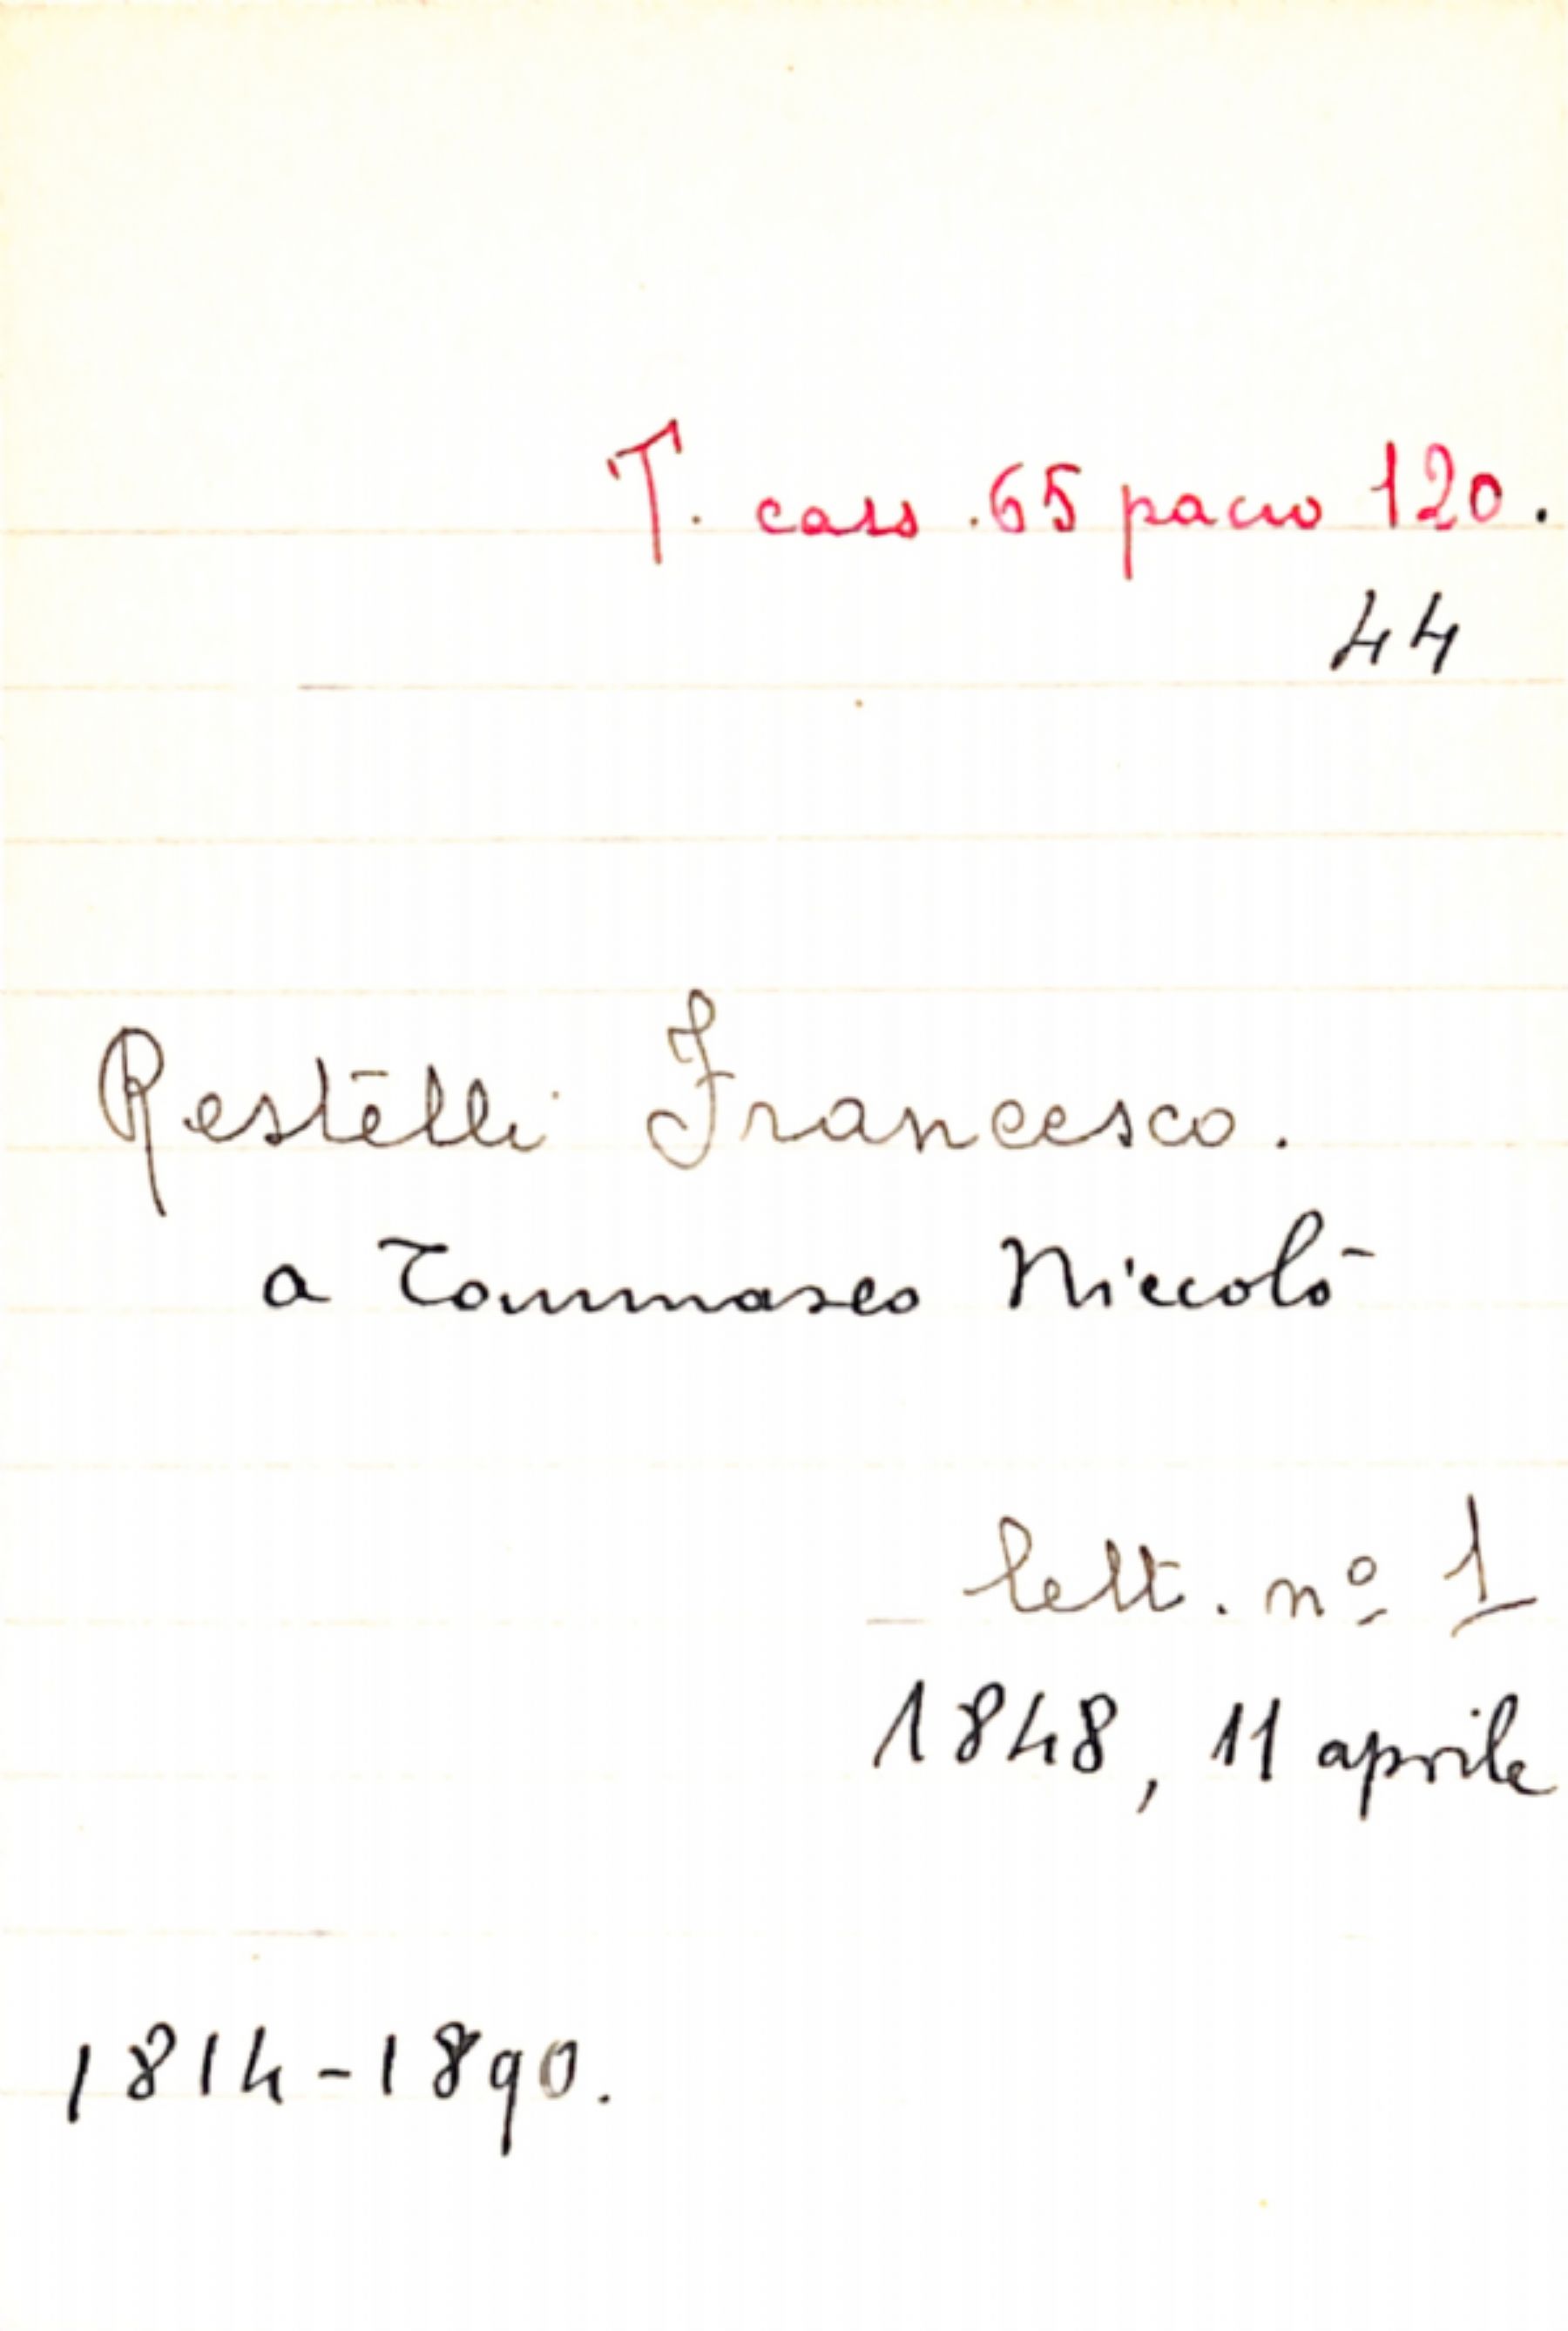 T. cass. 65 pacco 120.
44
Restelli Francesco.
a Tommaseo Niccolò
lett. nº 1
1848, 11 aprile
1814-1890.